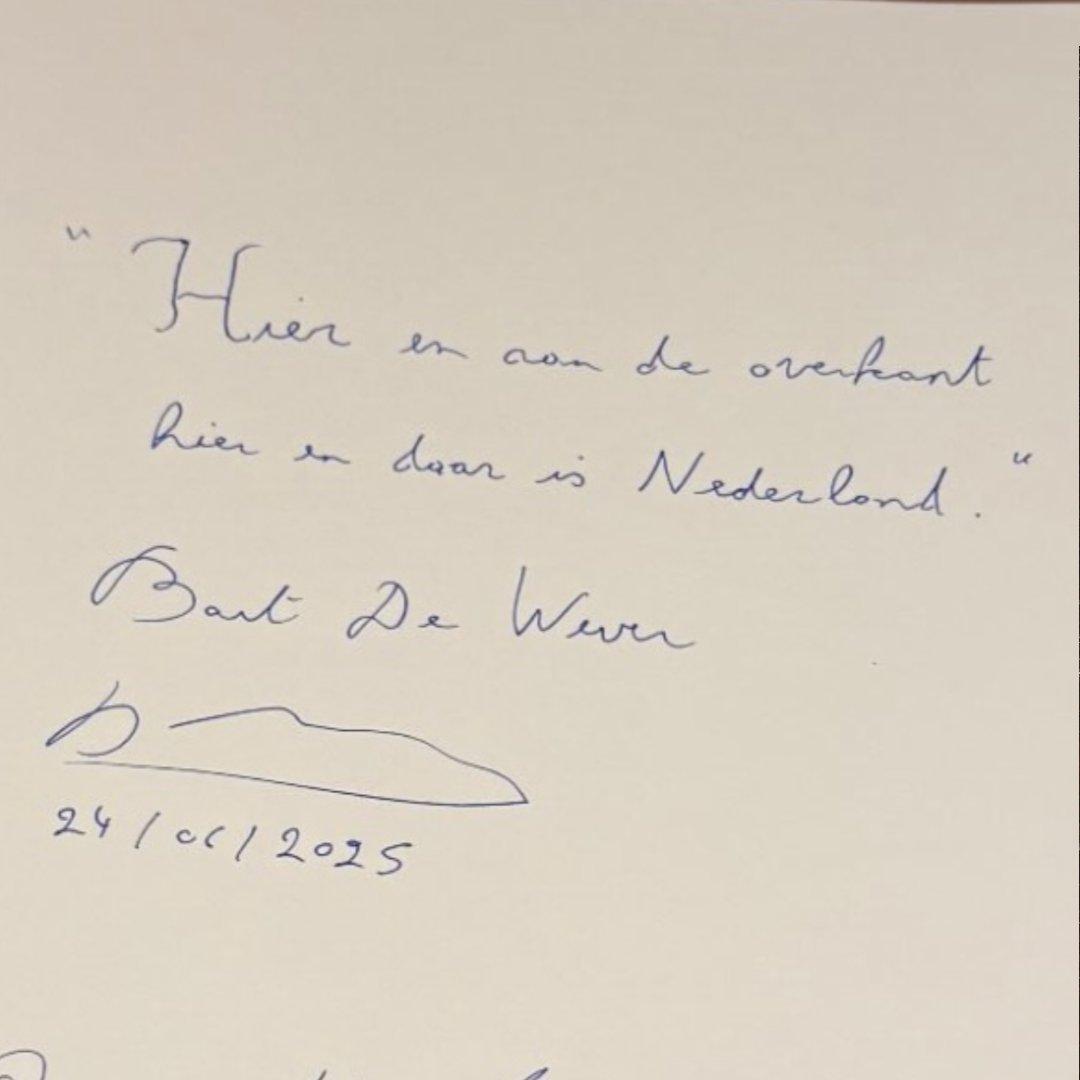 "Hier en aan de overkant
hier en daar is Nederland."
Bart De Wever
24/06/2025